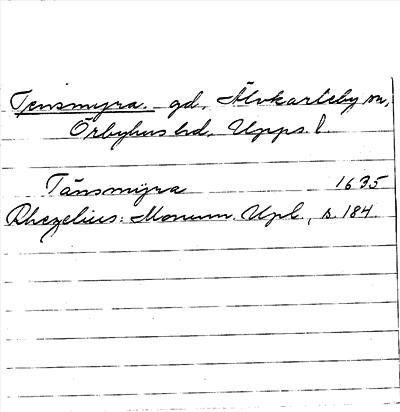 Tensmyra. gd, Älvkarleby sn,
Örbyhus hd, Upps. l.
Tänsmÿra 1635
Rhezelius: Monum. Upl., s. 184